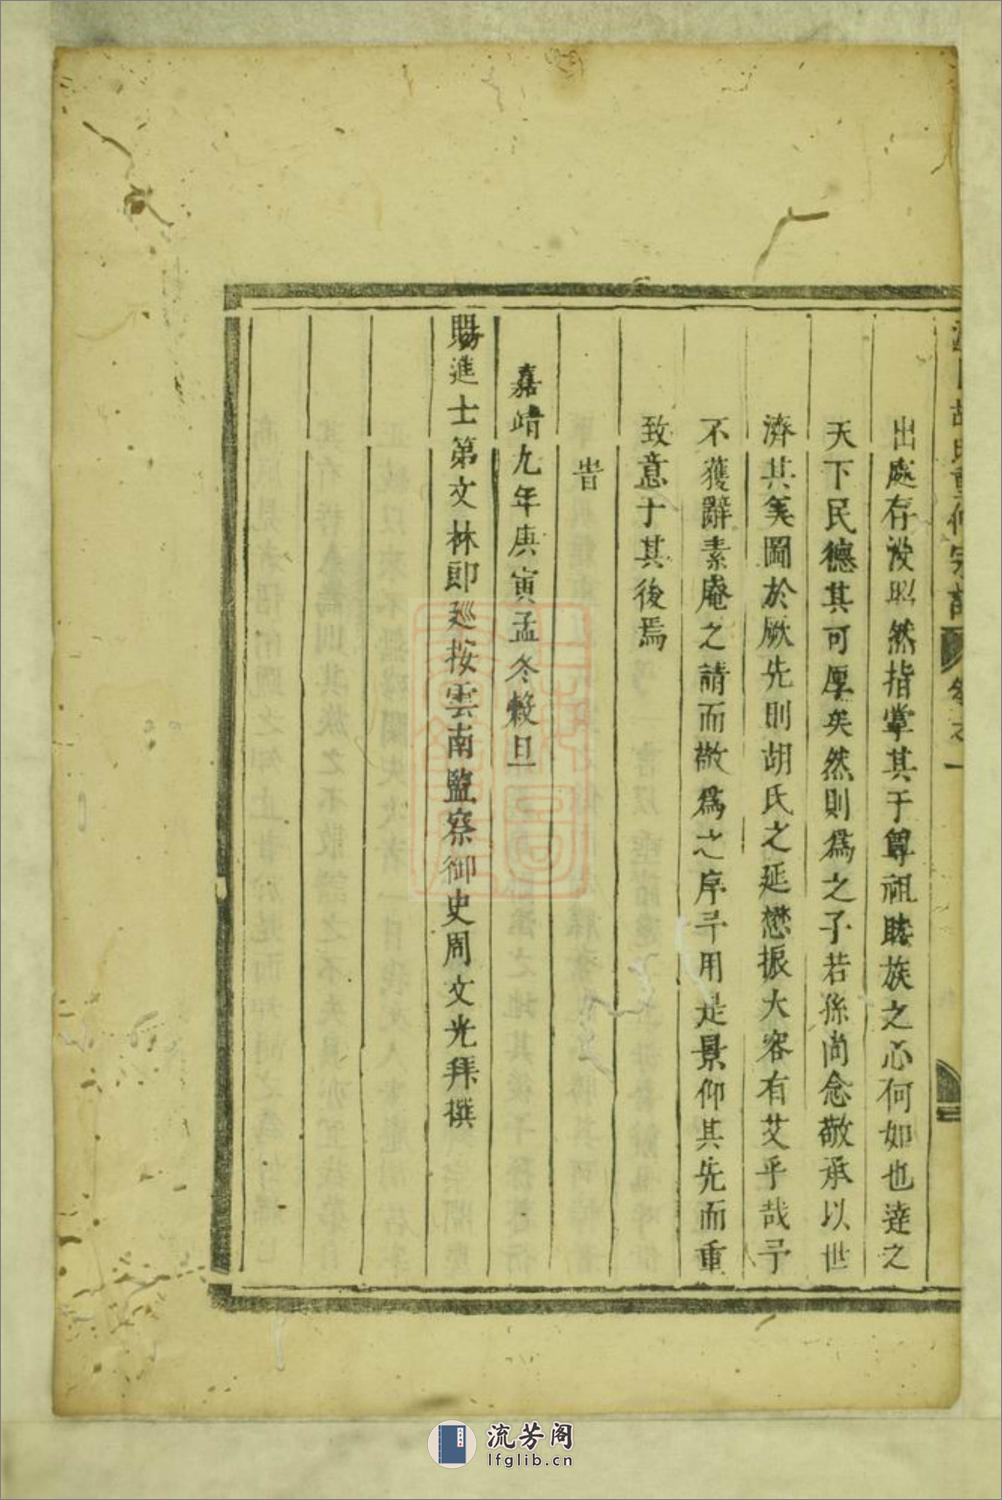 胡氏重修宗譜 卷之一
出處存沒昭然指掌其于尊祖睦族之心何如也達之
天下民德其可厚矣然則為之子若孫尚念敬承以世
濟其美圖於厥先則胡氏之延懋振大容有艾乎哉予
不獲辭素庵之請而敬為之序予用是景仰其先而重
致意于其後焉
旹
嘉靖九年庚寅孟冬榖旦
賜進士第文林郎巡按雲南監察御史周文光拜撰
流芳阁
lfglib.cn